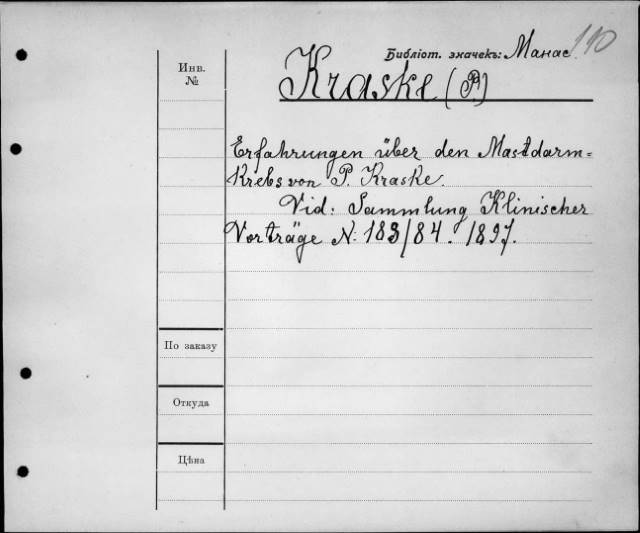 110
Библіот. значекъ: Манас.
Инв.
№
Kraske (P.)
Erfahrungen über den Mastdarm=
Krebs von P. Kraske.
Vid: Sammlung Klinischer
Vorträge N: 183/84. 1897.
По заказу
Откуда
Цѣна